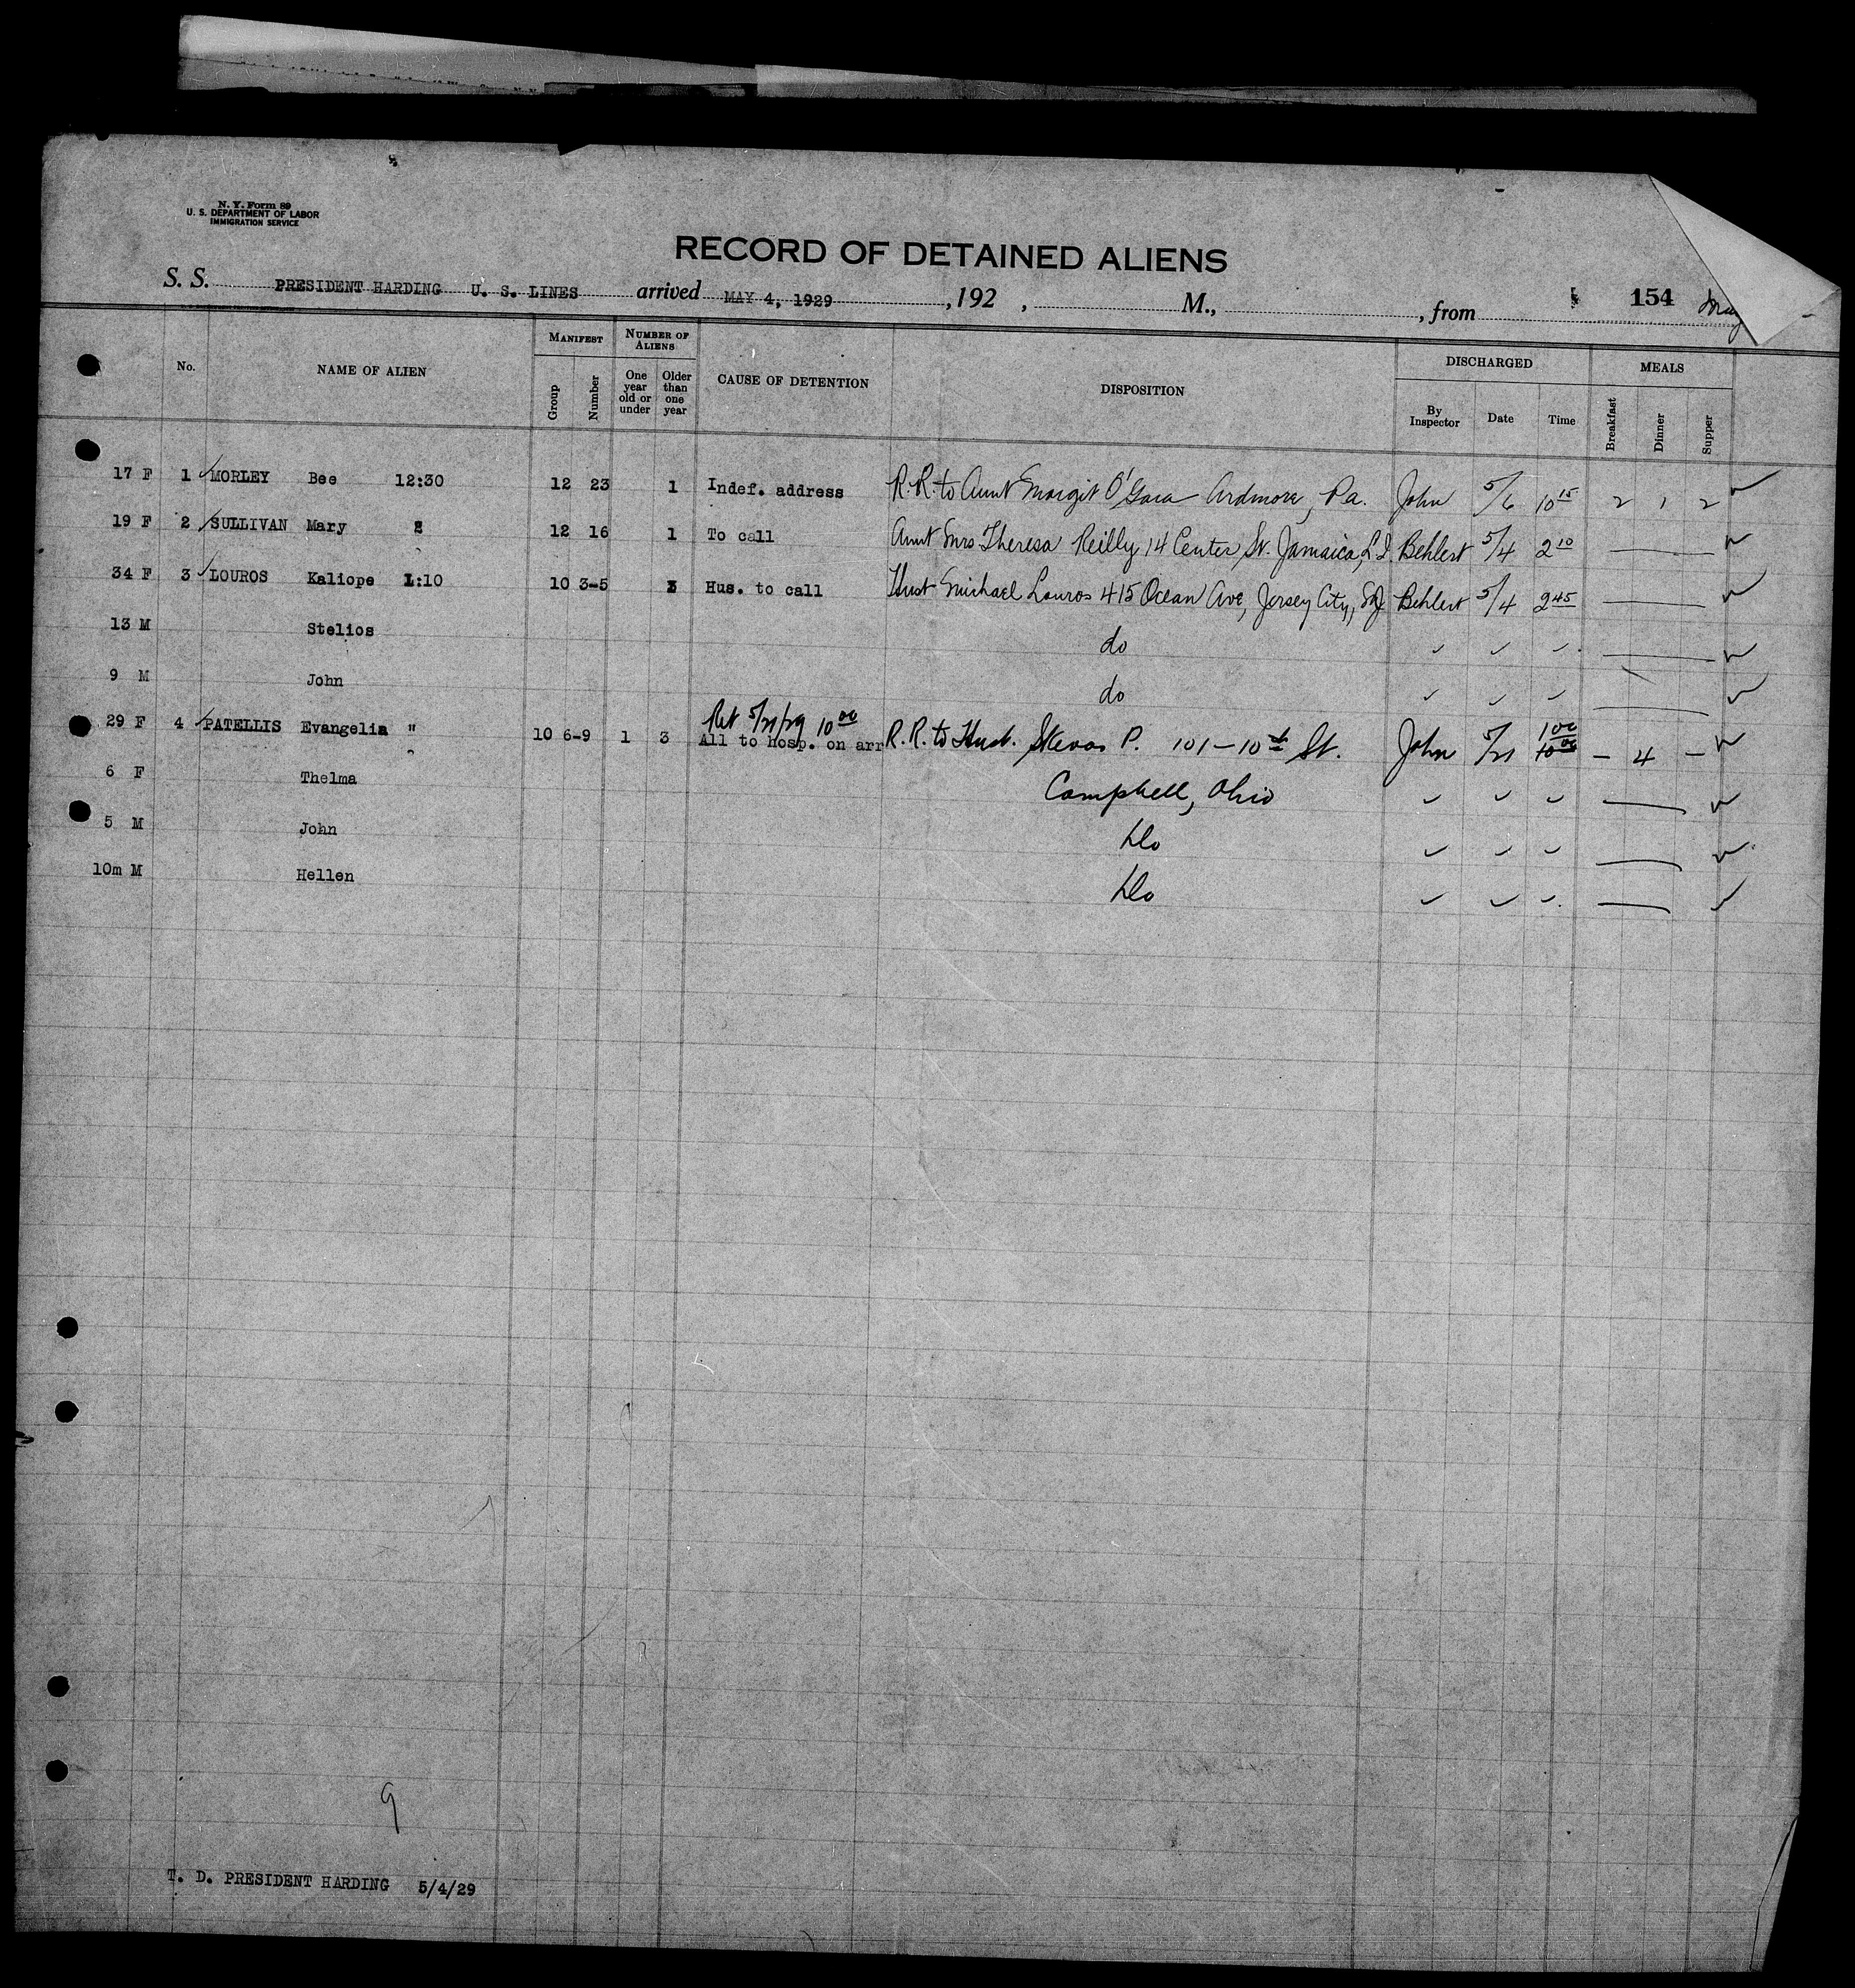 N. Y. Form 89
U. S. DEPARTMENT OF LABOR
IMMIGRATION SERVICE
RECORD OF DETAINED ALIENS
S. S. PRESIDENT HARDING U. S. LINES arrived MAY 4, 1929 , 192 , M., , from 154
No. NAME OF ALIEN MANIFEST Group Number NUMBER OF ALIENS One year old or under Older than one year CAUSE OF DETENTION DISPOSITION DISCHARGED By Inspector Date Time MEALS Breakfast Dinner Supper
17 F 1 MORLEY Bee 12:30 12 23 1 Indef. address R.R. to Aunt Margit O'Gara Ardmore, Pa. John 5/6 10 15 2 1 2
19 F 2 SULLIVAN Mary 12 16 1 To call Aunt Mrs Theresa Reilly 14 Center St. Jamaica, L.I. Behlert 5/4 2 10
34 F 3 LOUROS Kaliope 1:10 10 3-5 3 Hus. to call Husb Michael Louros 415 Ocean Ave, Jersey City, NJ Behlert 5/4 2 45
13 M Stelios do
9 M John do
Ret 5/21/29 10 00
29 F 4 PATELLIS Evangelia " 10 6-9 1 3 All to hosp. on arr R.R. to Husb. Skevos P. 101-10th St. John 5/21 1 00 10 00 - 4 -
6 F Thelma Campbell, Ohio
5 M John Do
10m M Hellen Do
9
T. D. PRESIDENT HARDING 5/4/29